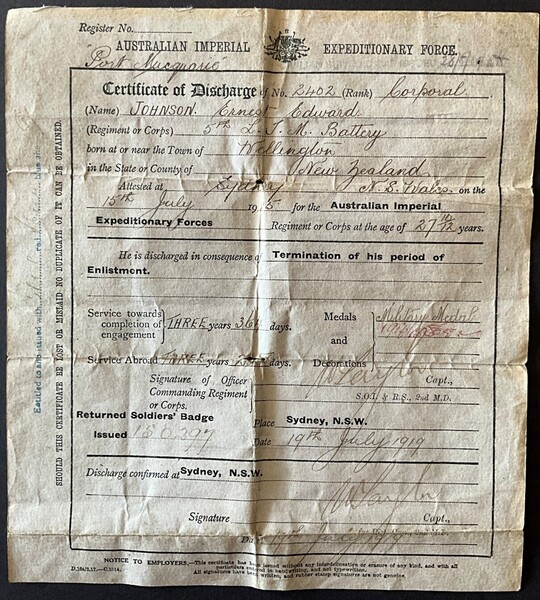 Register No.
AUSTRALIAN IMPERIAL EXPEDITIONARY FORCE.
Port Macquarie
Certificate of Discharge of No. 2402 (Rank) Corporal
(Name) JOHNSON Ernest Edward
(Regiment or Corps) 5th L. T. M. Battery
born at or near the Town of Wellington
in the State or County of New Zealand
Attested at Sydney N. S. Wales on the
15th July 1915 for the Australian Imperial
Expeditionary Forces Regiment or Corps at the age of 27 years.
He is discharged in consequence of Termination of his period of
Enlistment.
Service towards completion of engagement THREE years days.
Medals and Decorations Military Medal
Service Abroad THREE years days.
Signature of Officer Commanding Regiment or Corps.
Capt.,
S.O.I. & R.S., 2nd M.D.
Returned Soldiers' Badge
Issued
Place Sydney, N.S.W.
Date 19th July 1919
Discharge confirmed at Sydney, N.S.W.
Signature Capt.,
NOTICE TO EMPLOYERS.—This certificate has been issued without any interlineation or erasure of any kind, and with all
particulars entered in handwriting, and not typewritten.
All signatures have been written, and rubber stamp signatures are not genuine.
SHOULD THIS CERTIFICATE BE LOST OR MISLAID NO DUPLICATE OF IT CAN BE OBTAINED.